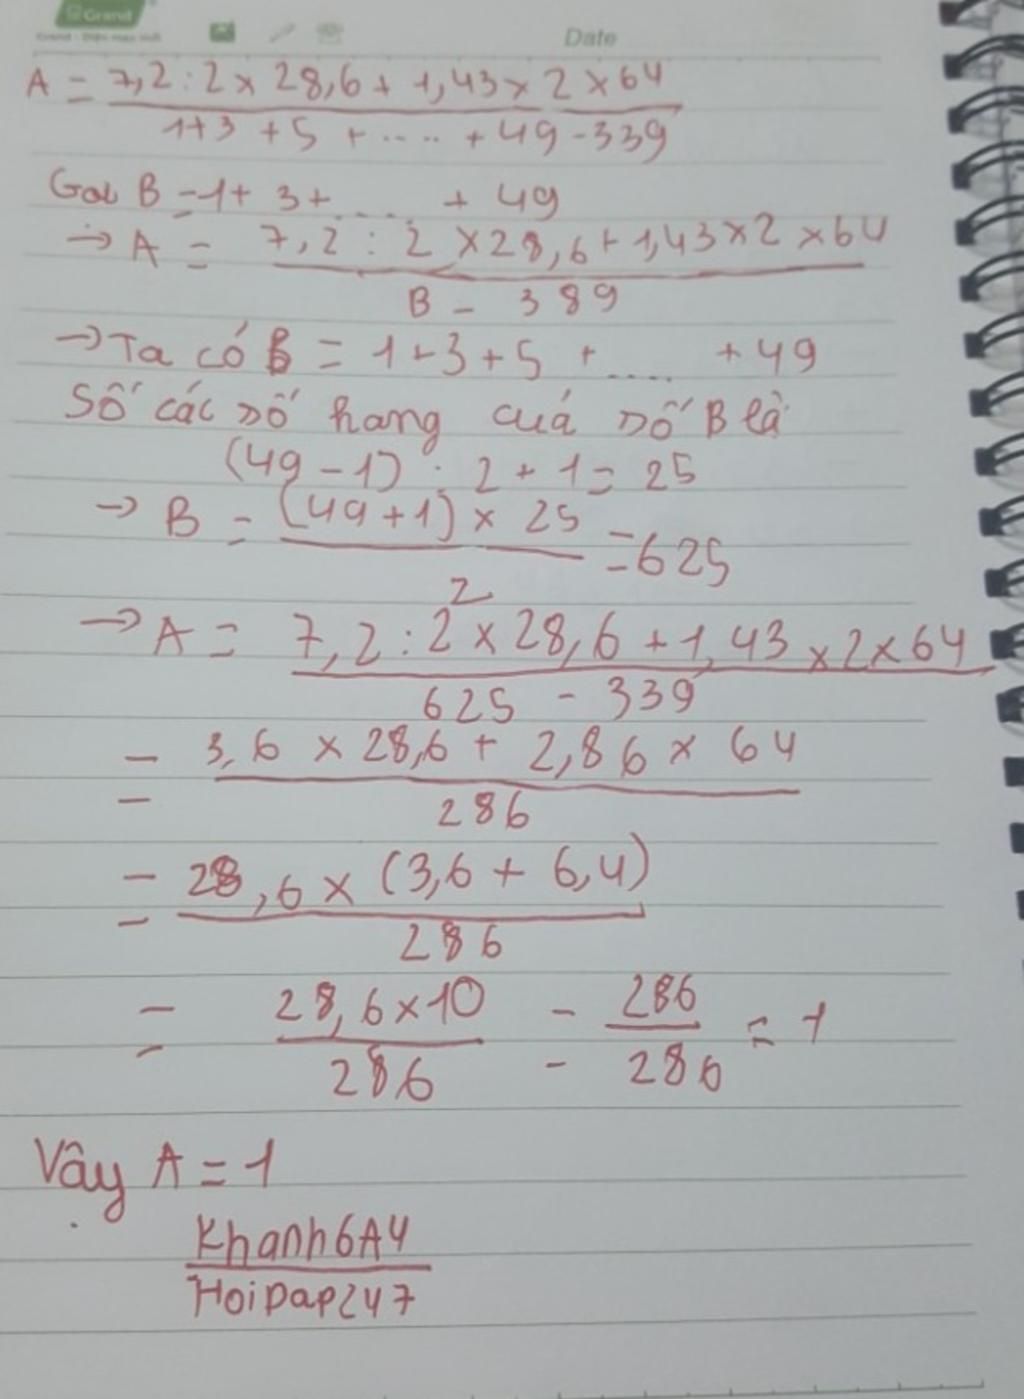 Grand
Date
A = 7,2 : 2 x 28,6 + 1,43 x 2 x 64
1+3 + 5 + ..... + 49 - 339
Goi B = 1 + 3 + ..... + 49
→ A = 7,2 : 2 x 28,6 + 1,43 x 2 x 64
B - 389
→ Ta có B = 1 + 3 + 5 + ..... + 49
Số các số hang cuả số B là
(49 - 1) : 2 + 1 = 25
→ B = (49 + 1) x 25 = 625
2
→ A = 7,2 : 2 x 28,6 + 1,43 x 2 x 64
625 - 339
= 3,6 x 28,6 + 2,86 x 64
286
= 28,6 x (3,6 + 6,4)
286
= 28,6 x 10 = 286 = 1
286 286
Vây A = 1
Khanh6A4
HoiDap247